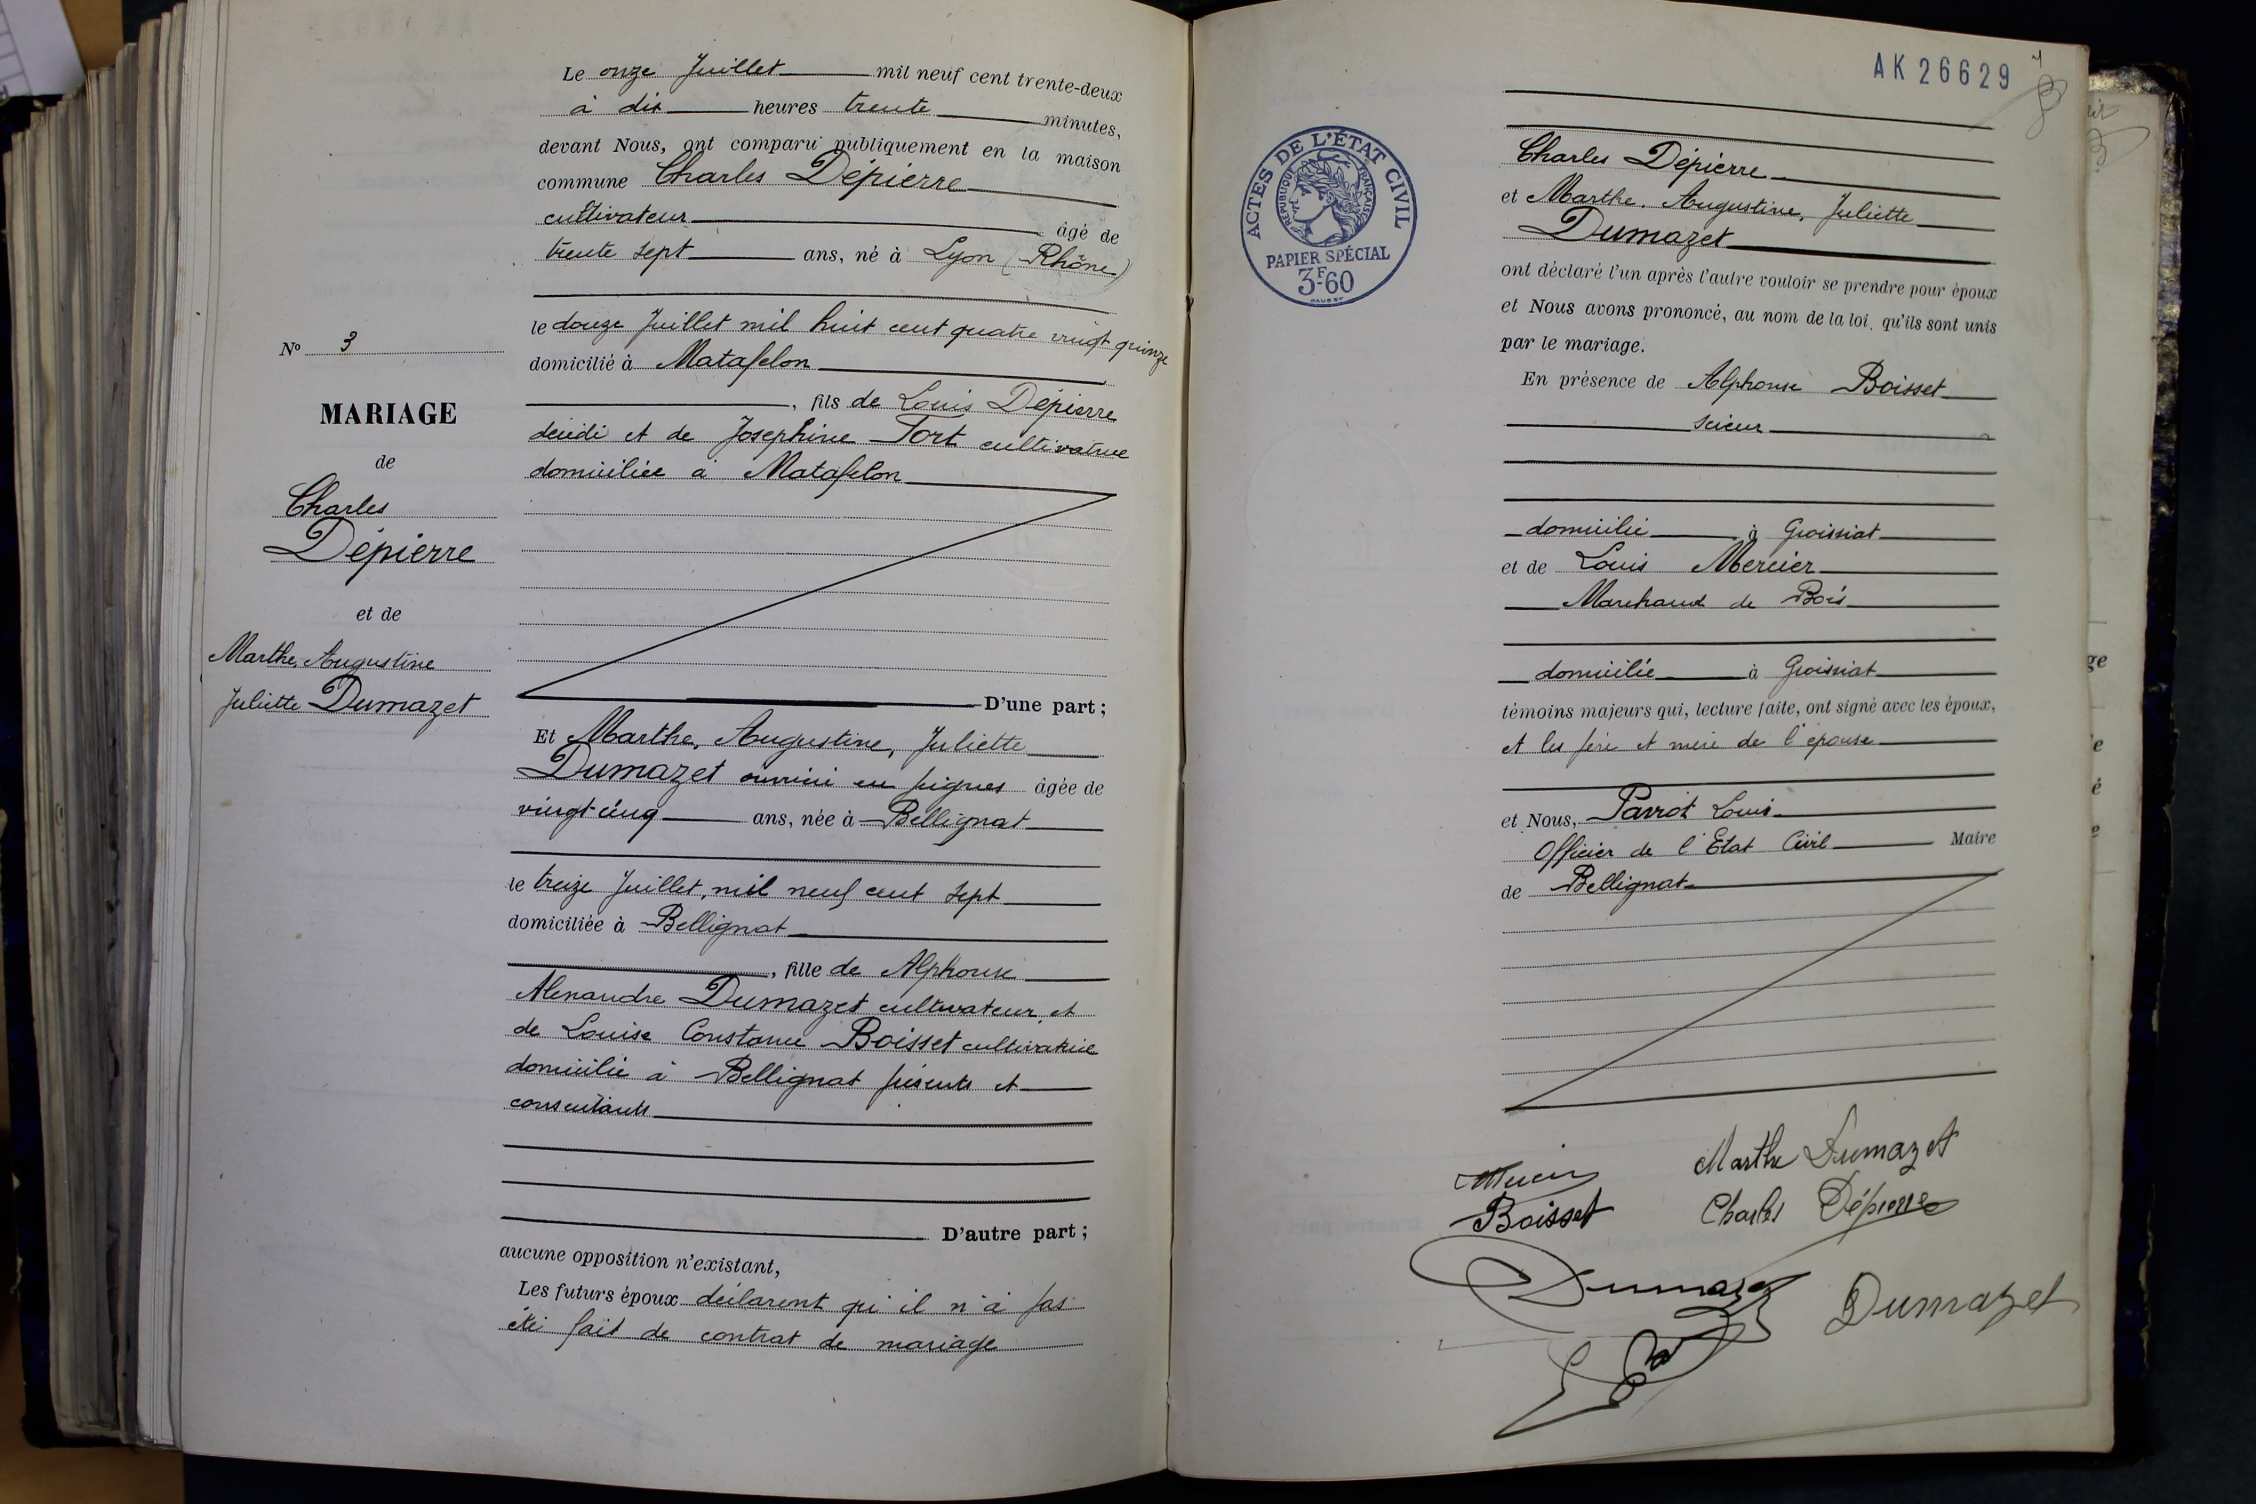 N° 3
MARIAGE
de
Charles
Dépierre
et de
Marthe, Augustine
Juliette Dumazet
Le onze Juillet mil neuf cent trente-deux
à dix heures trente minutes,
devant Nous, ont comparu publiquement en la maison
commune Charles Dépierre
cultivateur âgé de
trente sept ans, né à Lyon (Rhône)
le douze Juillet mil huit cent quatre vingt quinze
domicilié à Matafelon
, fils de Louis Dépierre
décédé et de Josephine Tort cultivatrice
domiciliée à Matafelon
D'une part ;
Et Marthe, Augustine, Juliette
Dumazet ouvrière en peignes âgée de
vingt-cinq ans, née à Bellignat
le treize Juillet, mil neuf cent sept
domiciliée à Bellignat
, fille de Alphonse
Alexandre Dumazet cultivateur, et
de Louise Constance Boisset cultivatrice
domicilié à Bellignat présents et
consentants
D'autre part ;
aucune opposition n'existant,
Les futurs époux déclarent qu'il n'a pas
été fait de contrat de mariage
AK 26629
ACTES DE L'ÉTAT CIVIL
RÉPUBLIQUE FRANÇAISE
PAPIER SPÉCIAL
3F-60
Charles Dépierre
et Marthe, Augustine, Juliette
Dumazet
ont déclaré l'un après l'autre vouloir se prendre pour époux
et Nous avons prononcé, au nom de la loi, qu'ils sont unis
par le mariage.
En présence de Alphonse Boisset
scieur
domicilié à Groissiat
et de Louis Mercier
Marchand de Bois
domicilié à Groissiat
témoins majeurs qui, lecture faite, ont signé avec les époux,
et les père et mère de l'épouse
et Nous, Parrot Louis
Officier de l'Etat Civil Maire
de Bellignat
Marthe Dumazet
Boisset Charles Dépierre
Dumazet
Dumazet